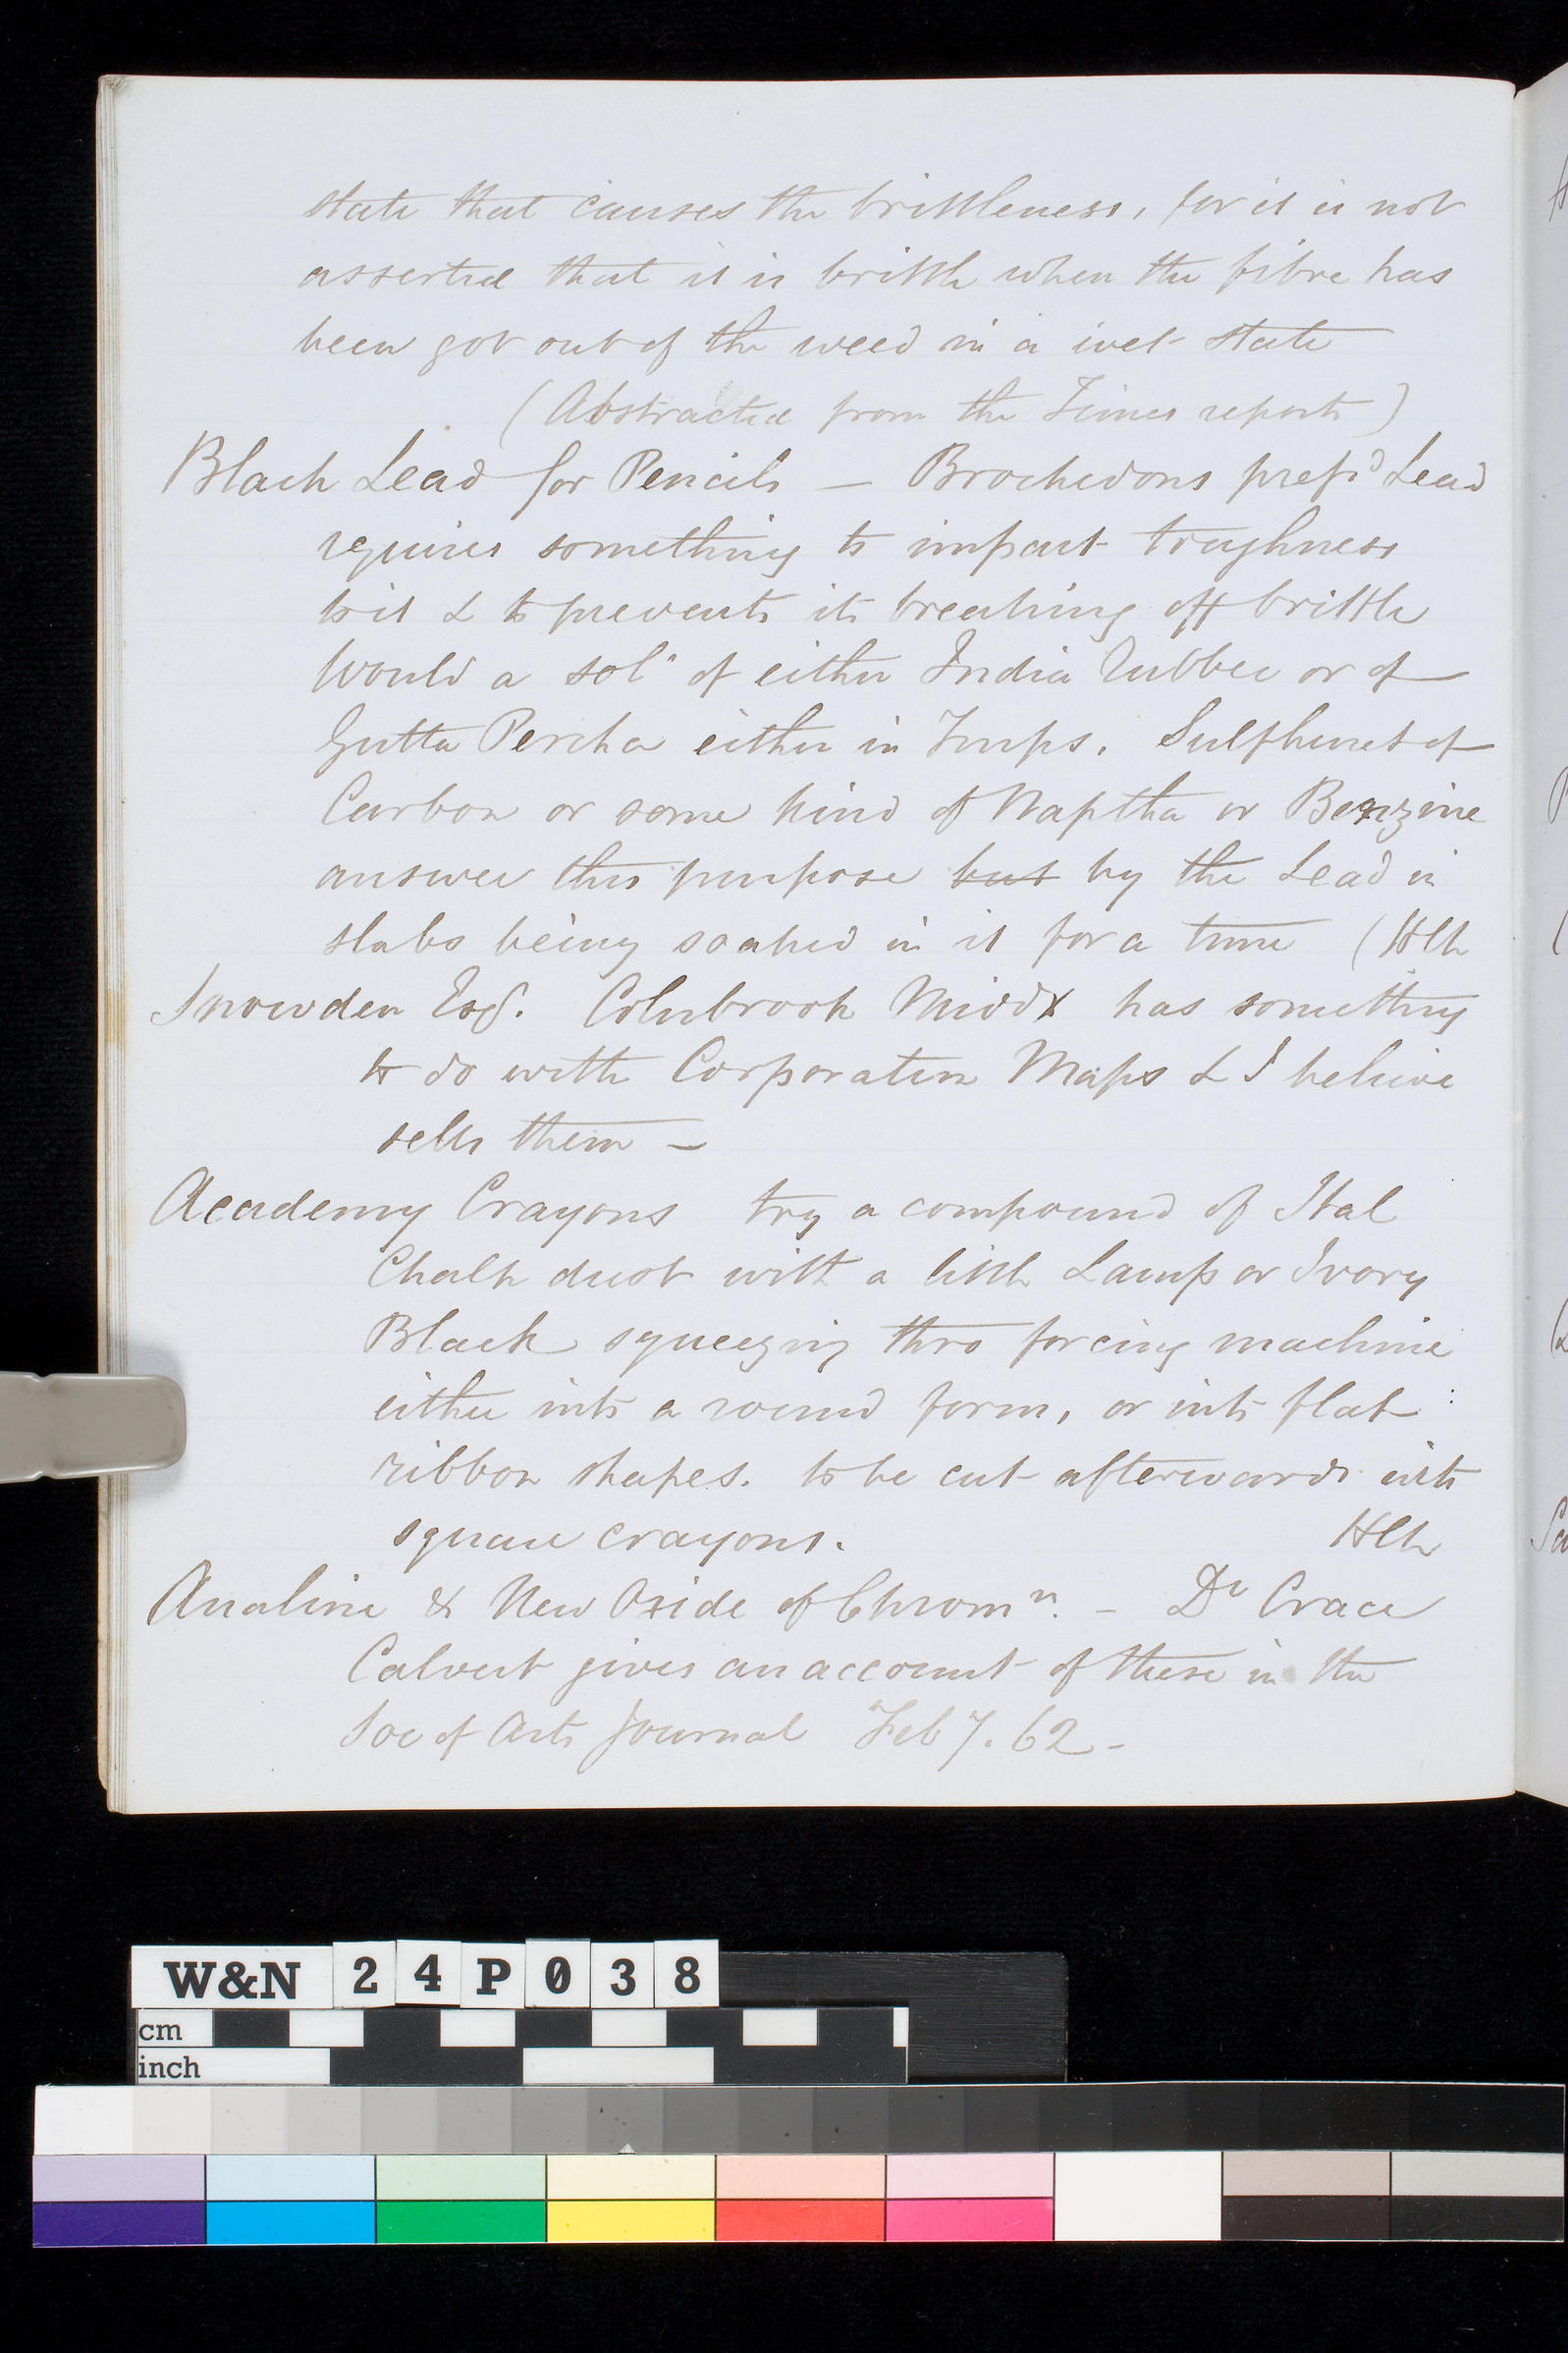 state that causes the brittleness, for it is not
asserted that it is brittle when the fibre has
been got out of the weed in a wet state
(Abstracted from the Times reports)
Black Lead for Pencils — Brockedons prepd Lead
requires something to impart toughness
to it & to prevents its breaking off brittle
Would a soln of either India Rubber or of
Gutta Percha either in Turps. Sulphuret of
Carbon or some kind of Naptha or Benzine
answer this purpose but by the Lead in
slabs being soaked in it for a time (HCh
Snowden Esq. Colnbrook Middx has something
to do with Corporation Maps & I believe
sells them —
Academy Crayons try a compound of Ital
Chalk dust with a little Lamp or Ivory
Black squeezing thro forcing machine
either into a round form, or into flat
ribbon shapes. to be cut afterwards into
square crayons. HCh
Analine & New Oxide of Chromm. — Dr Crace
Calvert gives an account of these in the
Soc of Arts Journal Feb 7. 62 -
W&N 24P038
cm
inch